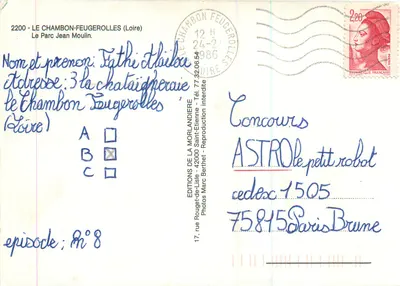 2200 - LE CHAMBON-FEUGEROLLES (Loire)
Le Parc Jean Moulin.
Nom et prenom: Fathi Alailou
Adresse: 3 la chataigneraie
le Chambon Feugerolles
(Loire)
A
B
C
episode: n°8
EDITIONS DE LA MORLANDIERE
17, rue Rouget-de-Lisle - 42000 Saint-Etienne - Tél. 77.32.06.
Photos Marc Berthet - Reproduction interdite
CHAMBON FEUGEROLLES
12 H
24-2
1986
LOIRE
2,20
Concours
ASTRO le petit robot
cedex 1505
75815 Paris Brune